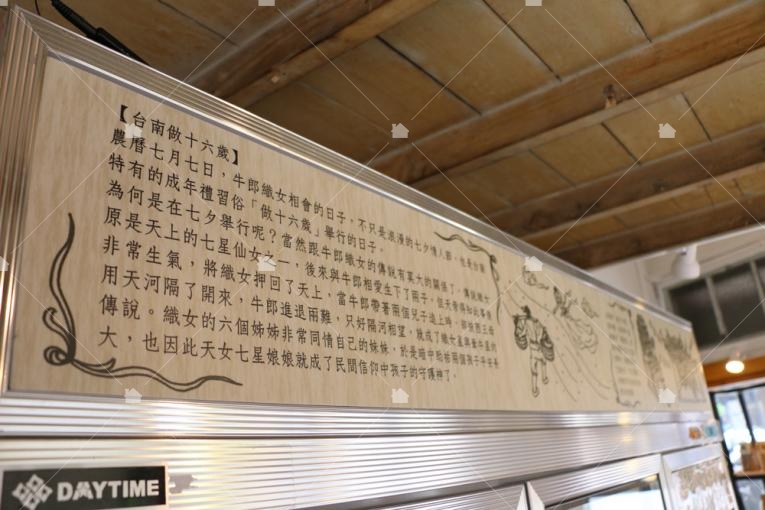 【台南做十六歲】
農曆七月七日，牛郎織女相會的日子，不只是浪漫的七夕情人節，也是台南
特有的成年禮習俗「做十六歲」舉行的日子。
為何是在七夕舉行呢？當然跟牛郎織女的傳說有莫大的關係了，傳說織女
原是天上的七星仙女之一，後來與牛郎相愛生下了兩子，但天帝得知此事後
非常生氣，將織女押回了天上，當牛郎帶著兩個兒子追上時，卻被西王母
用天河隔了開來，牛郎進退兩難，只好隔河相望，就成了織女星與牽牛星的
傳說。織女的六個姊姊非常同情自己的妹妹，於是暗中把兩個孩子平安長
大，也因此天女七星娘娘就成了民間信仰中孩子的守護神了。
DAYTIME